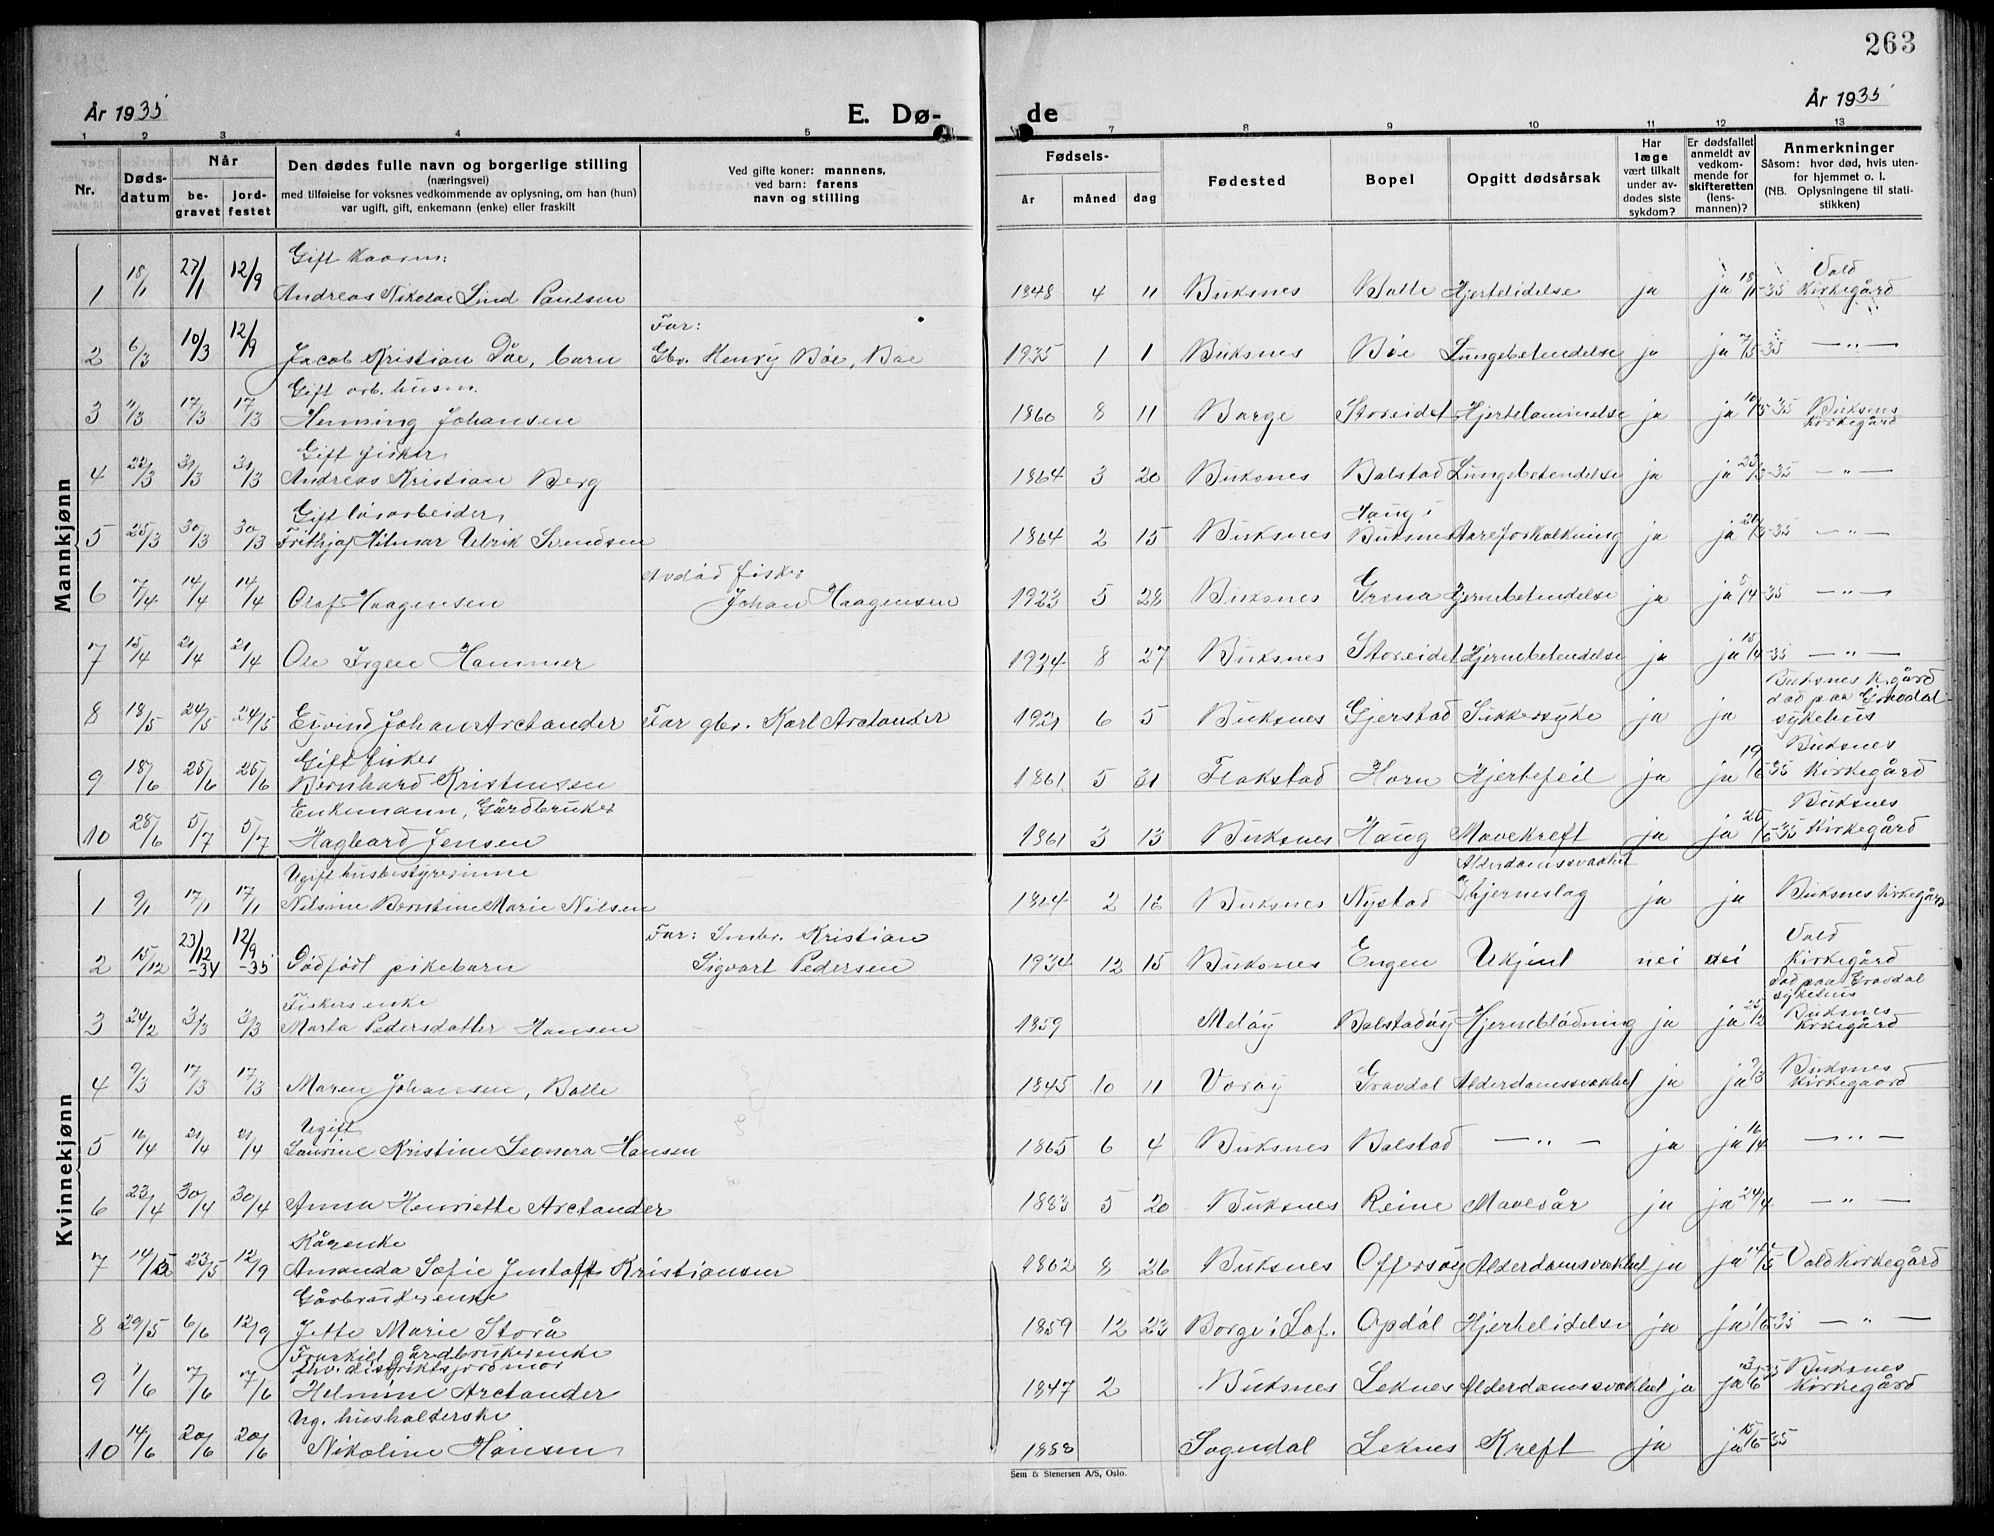 263
År 1935
E. Dø-
de
År 1935
1 2 3 4 5 7 8 9 10 11 12 13
Nr.
Dødsdatum
Når
begravet
jordfestet
Den dødes fulle navn og borgerlige stilling
(næringsvei)
med tilføielse for voksnes vedkommende av oplysning, om han (hun)
var ugift, gift, enkemann (enke) eller fraskilt
Ved gifte koner: mannens,
ved barn: farens
navn og stilling
Fødsels-
år måned dag
Fødested
Bopel
Opgitt dødsårsak
Har
læge
vært tilkalt
under avdødes
siste
sykdom?
Er dødsfallet
anmeldt av
vedkommende
for
skifteretten
(lensmannen)?
Anmerkninger
Såsom: hvor død, hvis utenfor
hjemmet o. l.
(NB. Oplysningene til statistikken)
Mannkjønn
Gift kaarm:
1 18/1 27/1 12/9 Andreas Nikolai Lind Paulsen 1848 4 11 Buksnes Balle Hjertelidelse ja ja 18/1-35 Vold Kirkegård
Far:
2 6/3 10/3 12/9 Jacob Kristian Bøe, barn Gbr. Henry Bøe, Bøe 1935 1 1 Buksnes Bøe Lungebetendelse ja ja 7/3-35 — " —
Gift arb. husm.
3 11/3 17/3 17/3 Henning Johansen 1860 8 11 Borge Storeidet Hjertelammelse ja ja -35 Buksnes Kirkegård
Gift fisker
4 22/3 31/3 31/3 Andreas Kristian Berg 1864 3 20 Buksnes Balstad Lungebetendelse ja ja 23/3-35 — " —
Gift løsarbeider,
5 25/3 30/3 30/3 Frithjof Hilmar Ulrik Svendsen 1864 2 15 Buksnes Haug i Buksnes Aareforkalkning ja ja -35 — " —
Avdød fisker
6 7/4 14/4 14/4 Olaf Haagensen Johan Haagensen 1923 5 28 Buksnes Grena Hjernebetendelse ja ja -35 — " —
7 15/4 21/4 21/4 Ole Irgen Hammer 1934 8 27 Buksnes Storeidet Hjernebetendelse ja ja 15/4-35 — " —
8 18/5 24/5 24/5 Eivind Johan Arctander Far gbr. Karl Arctander 1921 6 5 Buksnes Gjerstad Sukkersyke ja ja Buksnes K.gård død paa Gravdal sykehus
Gift fisker
9 18/6 25/6 25/6 Bernhard Kristensen 1861 5 31 Flakstad Horn Hjertefeil ja ja 19/6-35 Buksnes Kirkegård
Enkemann, Gårdbruker
10 28/6 5/7 5/7 Hagbard Jensen 1861 3 13 Buksnes Haug Mavekreft ja ja -35 Buksnes Kirkegård
Kvinnekjønn
Ugift husbestyrerinne
1 9/1 17/1 17/1 Nilsine Berntine Marie Nilsen 2 Buksnes Nystad Alderdomssvakhet og hjerneslag ja ja Buksnes kirkegård
Far: Småbr. Kristian
2 15/12 23/12-34 12/9-35 Dødfødt pikebarn Sigvart Pedersen 1934 12 15 Buksnes Engen Ukjent nei nei Vold Kirkegård
Fiskers enke
3 24/2 3/3 3/3 Marta Pedersdatter Hansen 1859 Meløy Balstadøy Hjerneblødning ja ja 25/2 død paa Gravdal sykehus Buksnes Kirkegård
4 9/3 17/3 17/3 Maren Johansen, Balle 1845 10 11 Værøy Gravdal Alderdomssvakhet ja ja 9/3 Buksnes Kirkegaard
Ugift
5 16/4 21/4 21/4 Laurine Kristine Leonora Hansen 1865 6 4 Buksnes Balstad — " — ja ja 16/4 — " —
6 23/4 30/4 30/4 Anna Henriette Arctander 1883 5 20 Buksnes Reine Mavesår ja ja 24/4 — " —
Kårenke
7 14/5 23/5 12/9 Amanda Sofie Jentoft Kristiansen 1862 8 26 Buksnes Offersøy Alderdomssvakhet ja ja 14/5 Vold Kirkegård
Gårbrukerenke
8 29/5 6/6 12/9 Jette Marie Storå 1859 12 23 Borge i Lof. Opdøl Hjertelidelse ja ja 1/6-35 — " —
Fraskilt gårdbrukerenke
fhv. distriktsjordmor
9 1/6 7/6 7/6 Helmine Arctander 1847 2 Buksnes Leknes Alderdomssvakhet ja ja 3/6-35 Buksnes Kirkegård
Ug. husholderske
10 14/6 20/6 20/6 Nikoline Hansen 1858 Sogndal Leknes Kreft ja ja 15/6-35
Sem & Stenersen A/S, Oslo.